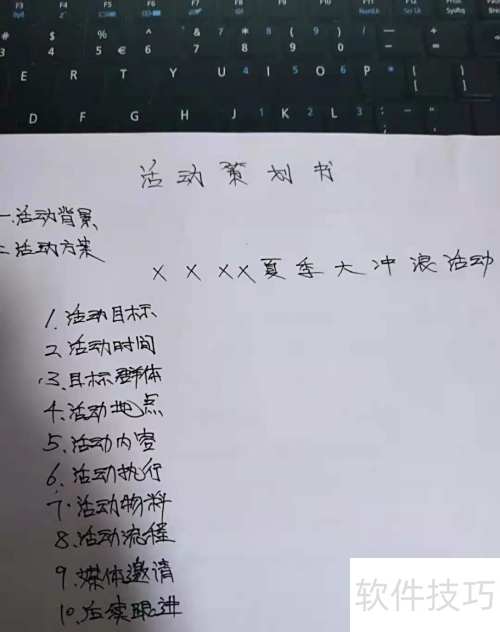 F3 F4 F5 F6 F7 F8 F9 F10 F11 F12 PrtSc Pause
NumLk ScrLk SysRq Break
# $ % ^ & * ( )
3 4 5 € 6 7 8 9 0
E R T Y U 4 I 5 O 6 P * { }
[ ]
D F G H J 1 K 2 L 3 : ; "
活动策划书
一.活动背景
二.活动方案
XXXX夏季大冲浪活动
1.活动目标
2.活动时间
3.目标群体
4.活动地点
5.活动内容
6.活动执行
7.活动物料
8.活动流程
9.媒体邀请
10.后续跟进
软件技巧